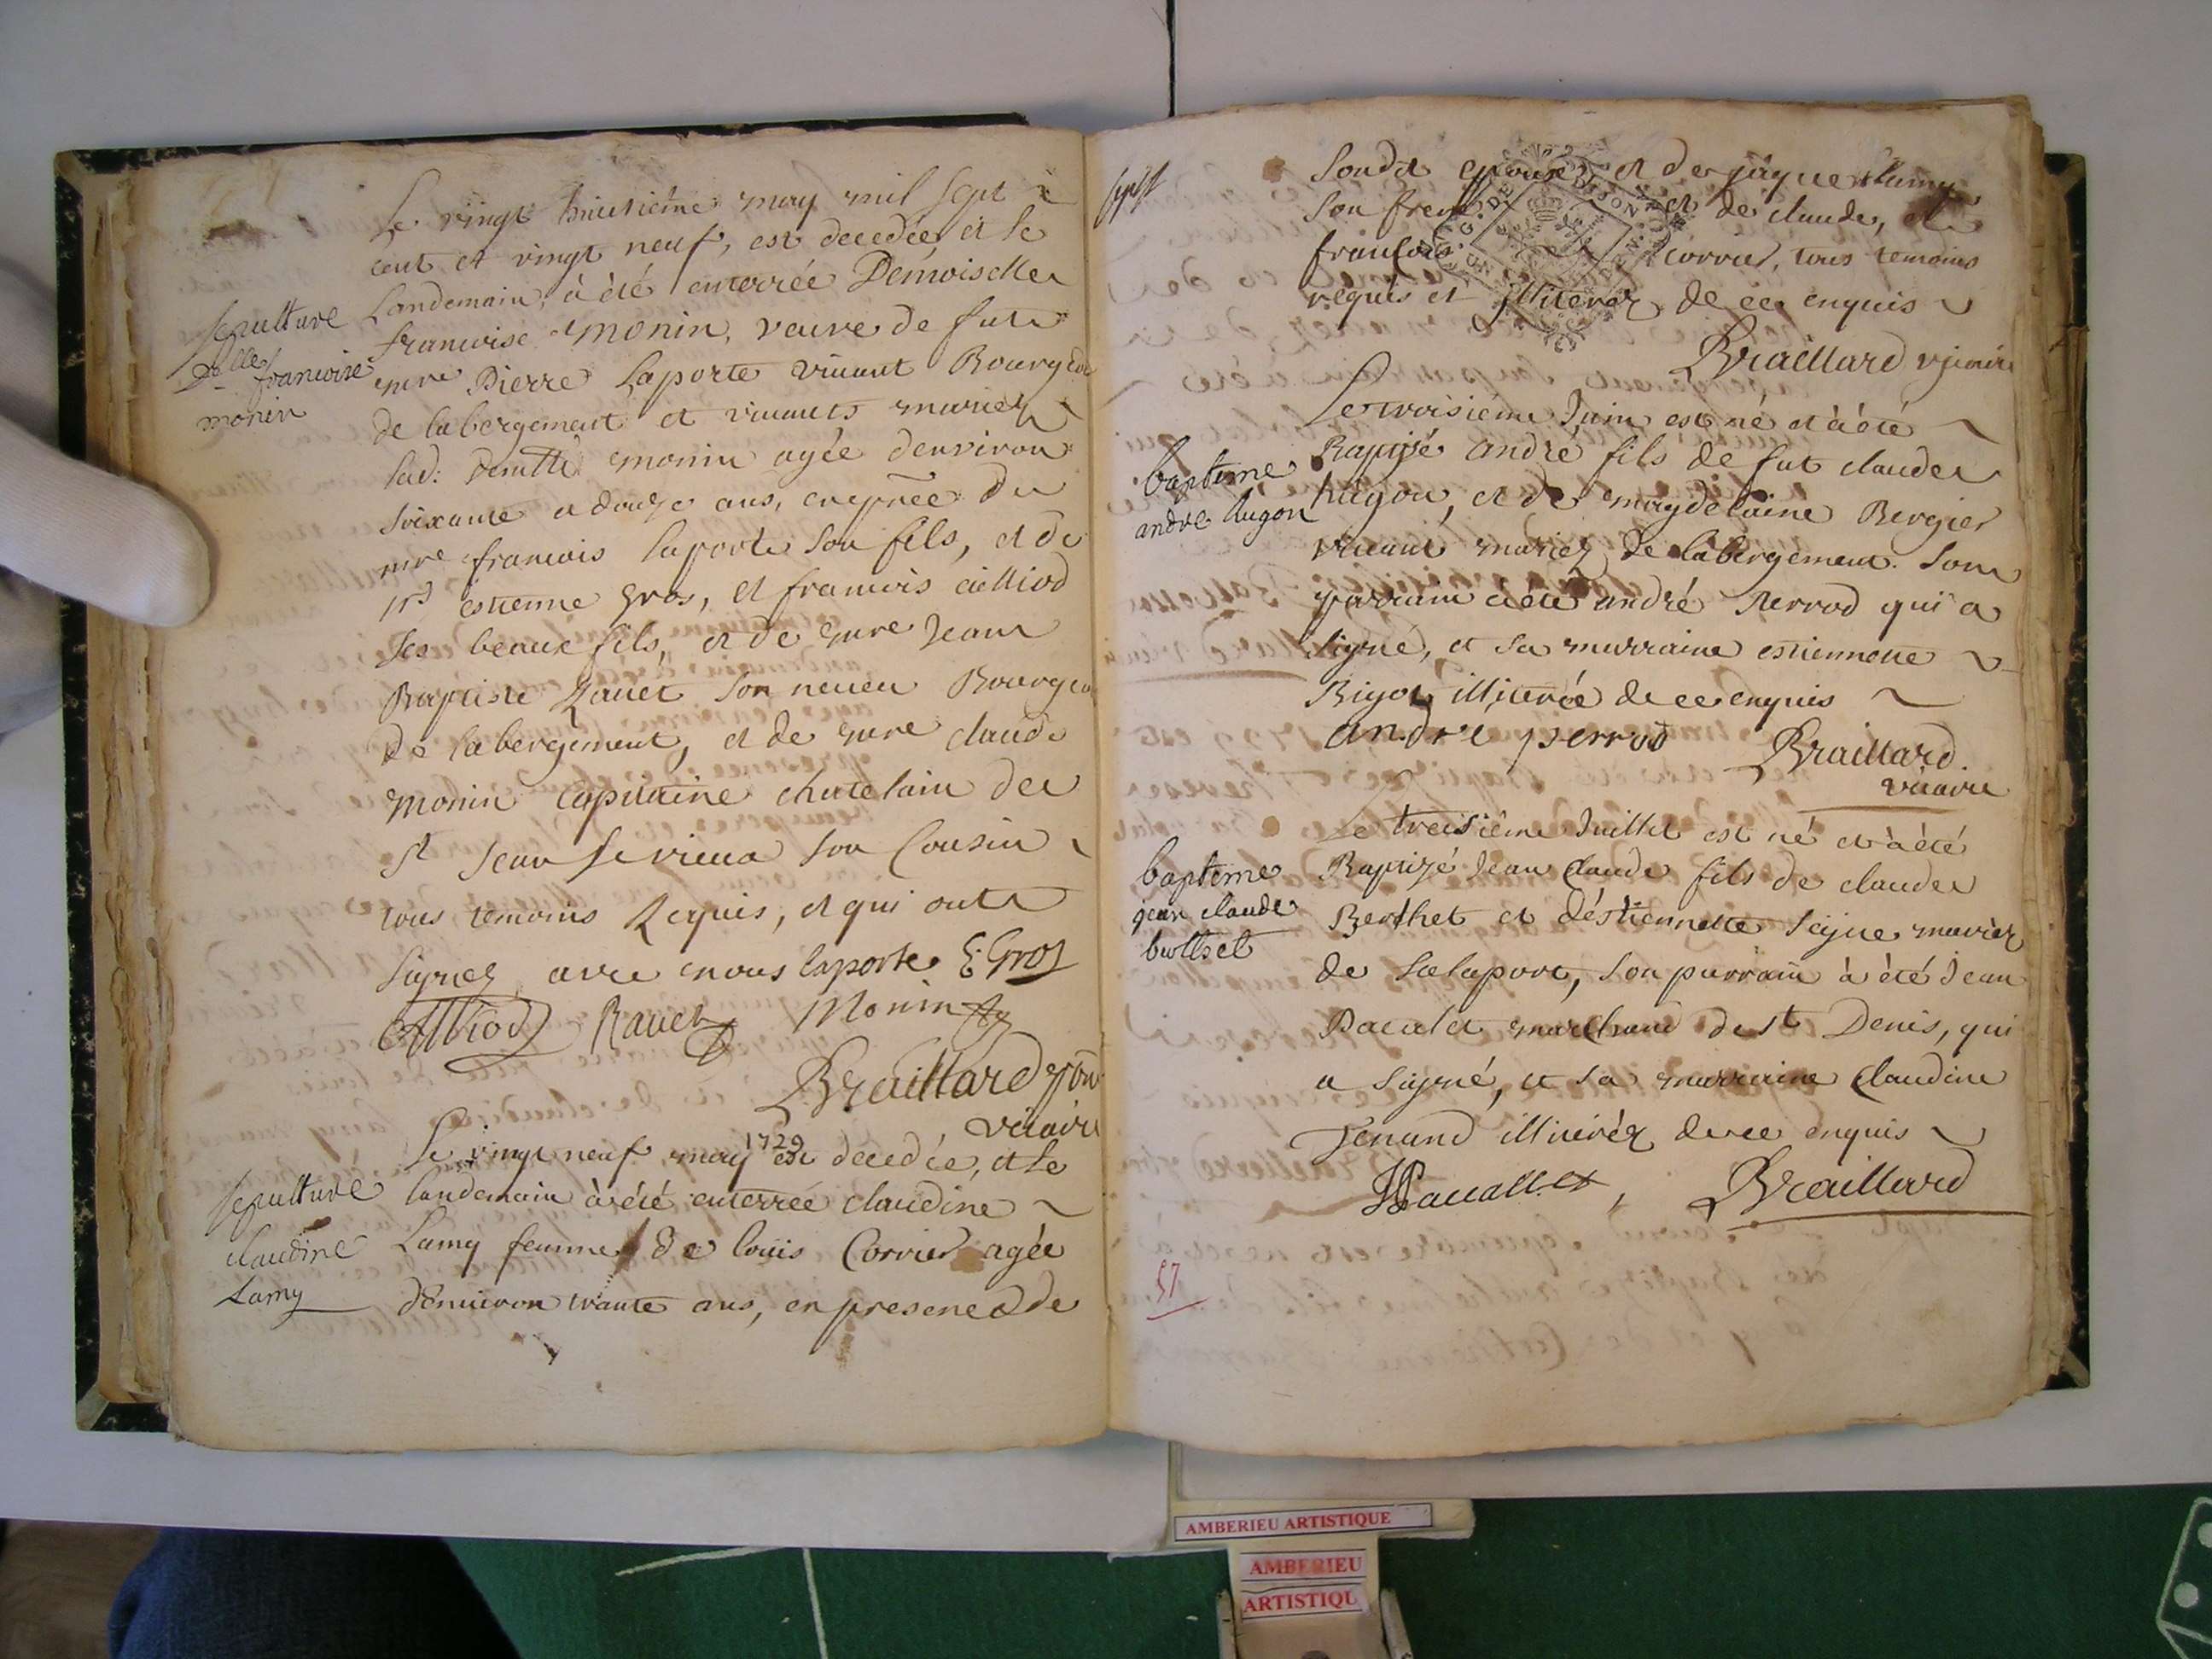 Le vingt huitieme may mil sept
cent et vingt neuf, est decedée et le
Landemain, à été enterrée Demoiselle
francoise monin, veuve de fut
mre Pierre Laporte vivant Bourgeois
de labergement et vivants mariez
lad: demlle monin agée denviron
soixante et douze ans, en pñce de
mre francois laporte son fils, et de
srs estienne gros, et francois
ses beaux fils, et de mre Jean
Baptiste Ravet son neveu Bourgeois
de labergement, et de mre claude
monin capitaine chatelain de
st Jean le vieux son Cousin
tous temoins Requis, et qui ont
signez avec nous laporte E: Gros
Ravet Monin
Braillard
vicaire
sepulture
Dlle francoise
monin
Le vingt neuf may 1729 est decedée, et le
landemain à été enterrée claudine
Lamy femme de louis Corrier agée
d'environ trante ans, en presence de
sepulture
claudine
Lamy
Soudit epoux, et de jaque lamy
son frere et de claude, et
francois corrier, tous temoins
requis et illiterez de ce enquis
Braillard vicaire
Le troisième Juin est né et à été
Baptisé andré fils de fut claude
hugon, et de magdelaine Bergier
vivant mariez de labergement. Son
parrain à été andré Perrod qui a
signé, et sa marraine estiennette
Bigot illiterée de ce enquis
andre perrod Braillard
vicaire
baptême
andre hugon
Le treisième Juillet est né et à été
Baptizé Jean Claude fils de claude
Berthet et d'éstiennette seigne mariez
de salaport, son parrain à été Jean
Pacalet marchand de st Denis, qui
a signé, et sa marraine Claudine
Jenand illiterée de ce enquis
JPacallet, Braillard
baptême
jean claude
berthet
57
AMBERIEU ARTISTIQUE
AMBERIEU
ARTISTIQU